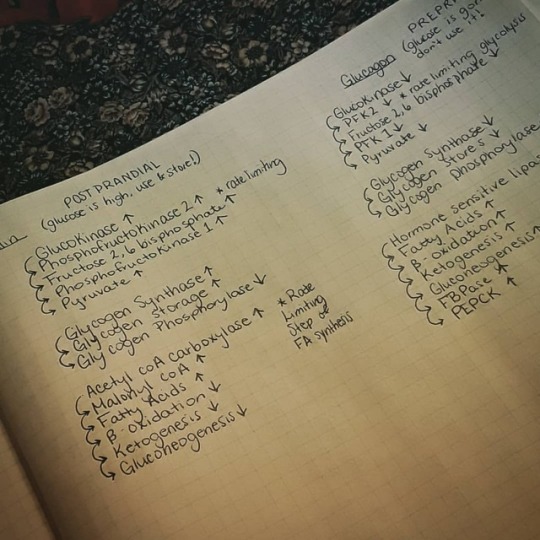 POSTPRANDIAL
(glucose is high, use & store!)
Glucokinase ↑
Phosphofructokinase 2 ↑ * rate limiting
Fructose 2,6 bisphosphate ↑
Phosphofructokinase 1 ↑
Pyruvate ↑
Glycogen Synthase ↑
Glycogen storage ↑
Glycogen Phosphorylase ↓
Acetyl coA carboxylase ↑
Malonyl coA ↑
Fatty Acids ↑
β-oxidation ↓
Ketogenesis ↓
Gluconeogenesis ↓
* Rate
Limiting
Step of
FA synthesis
Glucagon
(glucose is
don't use it!
Glucokinase ↓
PFK2 ↓ * rate limiting glycolysis
Fructose 2,6 bisphosphate ↓
PFK 1 ↓
Pyruvate ↓
Glycogen Synthase ↓
Glycogen Stores ↓
Glycogen Phosphorylase
Hormone sensitive
Fatty Acids ↑
β-oxidation ↑
Ketogenesis ↑
Gluconeogenesis ↑
FBPase ↑
PEPCK ↑